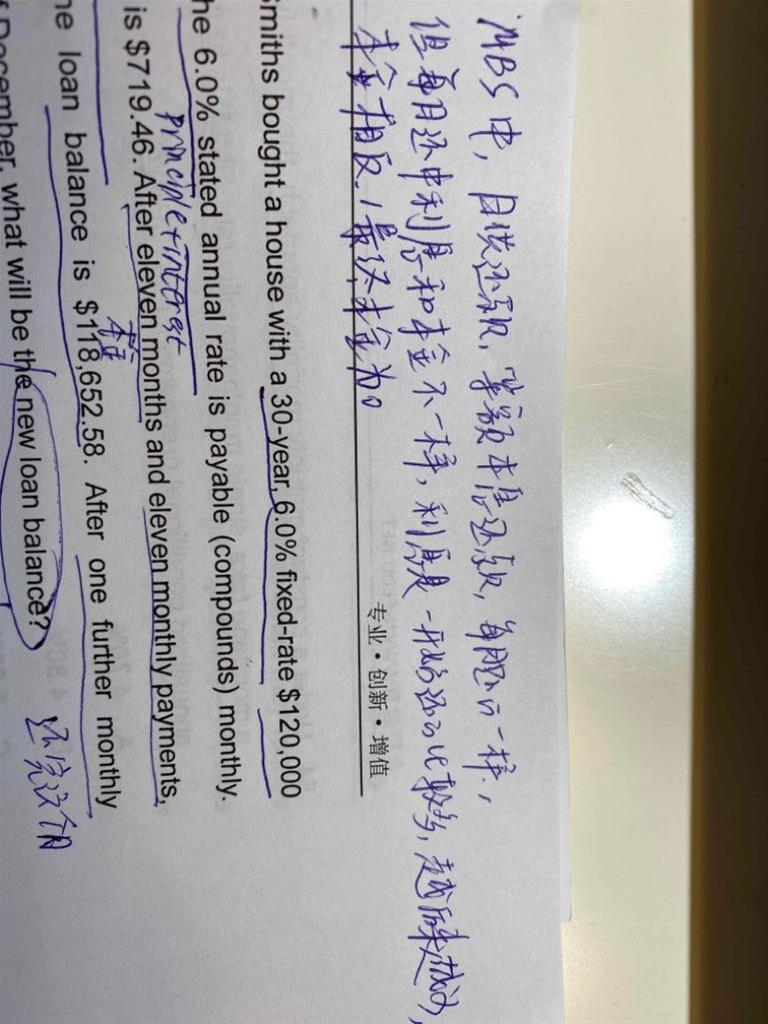 MBS中, 月供还款, 等额本息还款, 每月还的一样,
但每月还中利息和本金不一样, 利息是一开始还的比较多, 越后来越减少,
本金相反, 最后本金为0
专业·创新·增值
Smiths bought a house with a 30-year, 6.0% fixed-rate $120,000
he 6.0% stated annual rate is payable (compounds) monthly.
principle+interest
is $719.46. After eleven months and eleven monthly payments,
本金
he loan balance is $118,652.58. After one further monthly
f December, what will be the new loan balance? 还完这个月